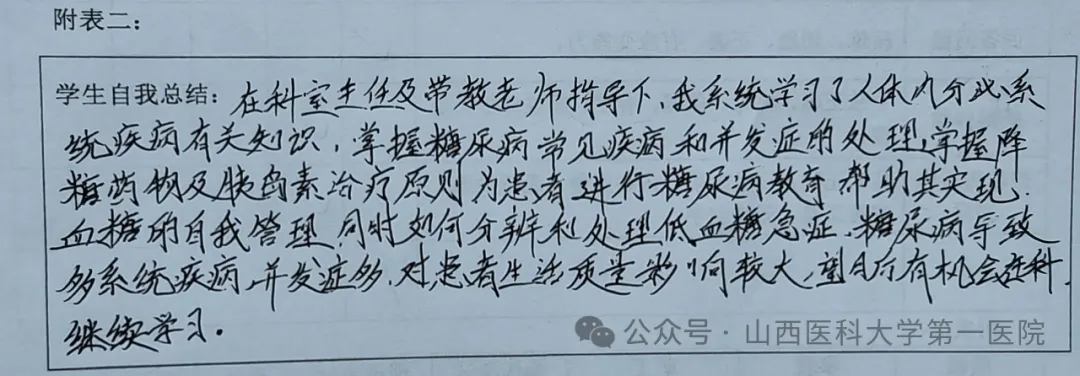 附表二：
学生自我总结：在科室主任及带教老师指导下，我系统学习了人体内分泌系
统疾病有关知识，掌握糖尿病常见疾病和并发症的处理，掌握降
糖药物及胰岛素治疗原则为患者进行糖尿病教育帮助其实现
血糖的自我管理，同时如何分辨和处理低血糖急症，糖尿病导致
多系统疾病，并发症多，对患者生活质量影响较大，望日后有机会来科
继续学习。
公众号·山西医科大学第一医院